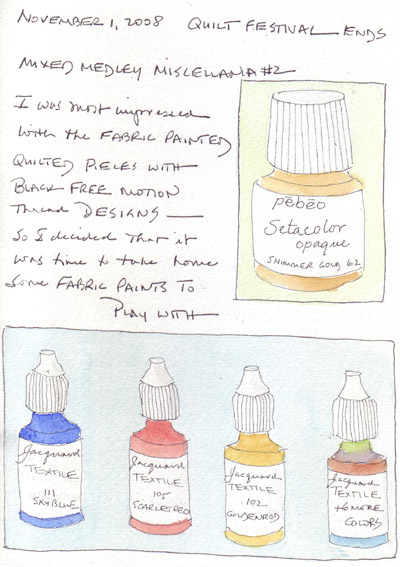 NOVEMBER 1, 2008 QUILT FESTIVAL ENDS
MIXED MEDLEY MISCELLANIA #2
I was most impressed
with the FABRIC PAINTED
QUILTED PIECES WITH
BLACK FREE MOTION
Thread DESIGNS —
So I decided that it
was time to take home
some FABRIC PAINTS TO
PLAY WITH —
pēbēo
Setacolor
opaque
SHIMMER GOLD 62
Jacquard
TEXTILE
111
SKYBLUE
Jacquard
TEXTILE
105
SCARLETRED
Jacquard
TEXTILE
102
GOLDENROD
Jacquard
TEXTILE
+6 MORE
COLORS